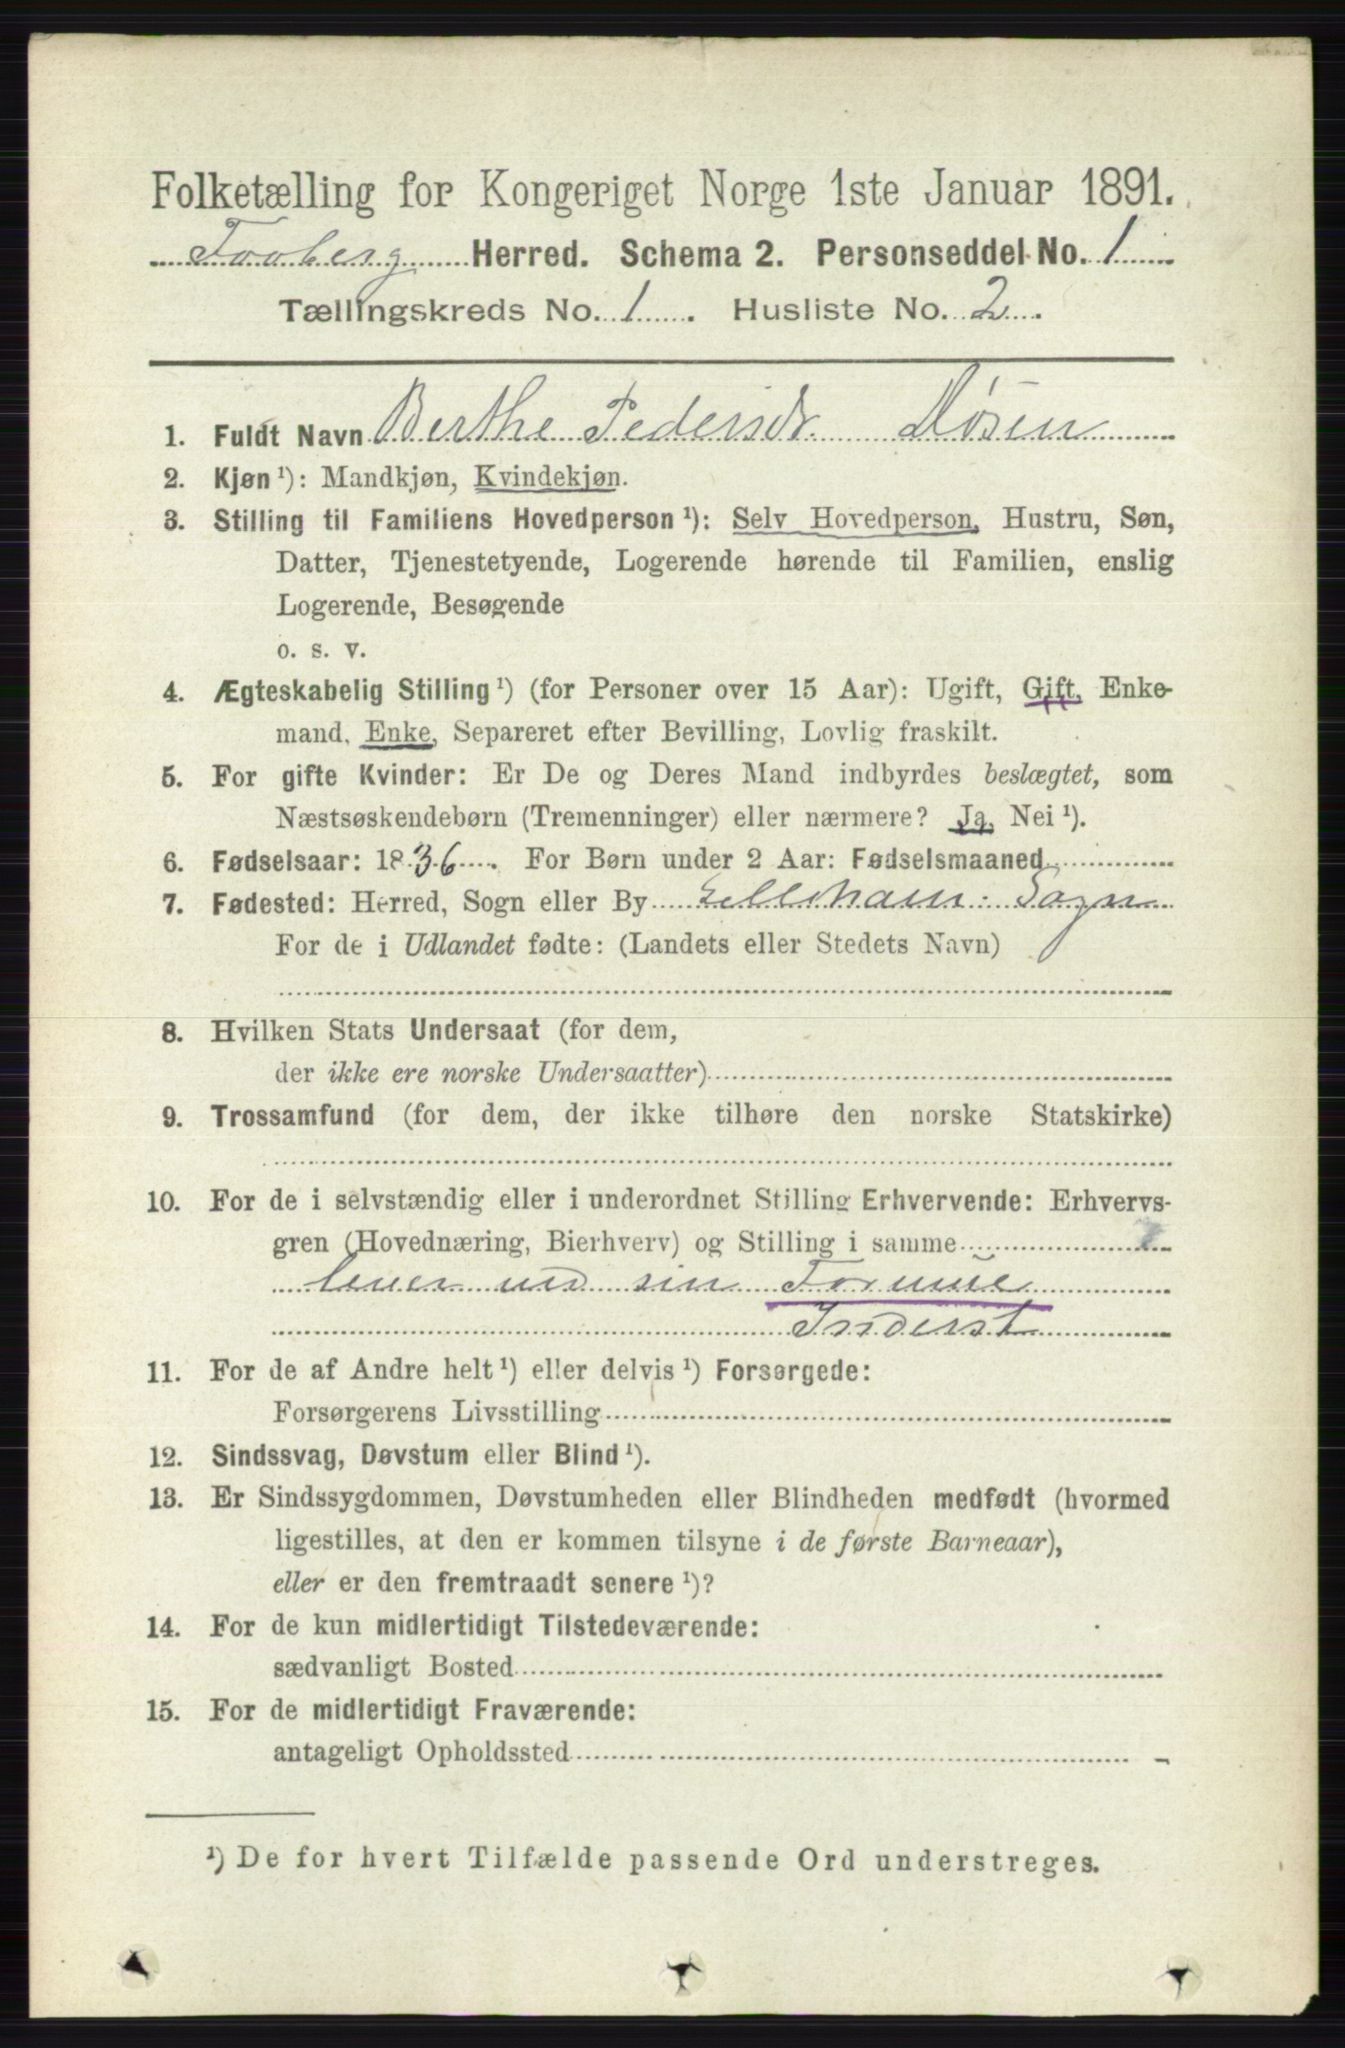 Folketælling for Kongeriget Norge 1ste Januar 1891.
Faaberg Herred. Schema 2. Personseddel No. 1
Tællingskreds No. 1. Husliste No. 2.
1. Fuldt Navn Berthe Pedersdr Døsen
2. Kjøn ¹): Mandkjøn, Kvindekjøn.
3. Stilling til Familiens Hovedperson ¹): Selv Hovedperson, Hustru, Søn,
Datter, Tjenestetyende, Logerende hørende til Familien, enslig
Logerende, Besøgende
o. s. v.
4. Ægteskabelig Stilling ¹) (for Personer over 15 Aar): Ugift, Gift, Enke-
mand, Enke, Separeret efter Bevilling, Lovlig fraskilt.
5. For gifte Kvinder: Er De og Deres Mand indbyrdes beslægtet, som
Næstsøskendebørn (Tremenninger) eller nærmere? Ja, Nei ¹).
6. Fødselsaar: 1836. For Børn under 2 Aar: Fødselsmaaned
7. Fødested: Herred, Sogn eller By Lilleham: Sogn
For de i Udlandet fødte: (Landets eller Stedets Navn)
8. Hvilken Stats Undersaat (for dem,
der ikke ere norske Undersaatter)
9. Trossamfund (for dem, der ikke tilhøre den norske Statskirke)
10. For de i selvstændig eller i underordnet Stilling Erhvervende: Erhvervs-
gren (Hovednæring, Bierhverv) og Stilling i samme
lever ud sin Formue
Inderst
11. For de af Andre helt ¹) eller delvis ¹) Forsørgede:
Forsørgerens Livsstilling
12. Sindssvag, Døvstum eller Blind ¹).
13. Er Sindssygdommen, Døvstumheden eller Blindheden medfødt (hvormed
ligestilles, at den er kommen tilsyne i de første Barneaar),
eller er den fremtraadt senere ¹)?
14. For de kun midlertidigt Tilstedeværende:
sædvanligt Bosted
15. For de midlertidigt Fraværende:
antageligt Opholdssted
¹) De for hvert Tilfælde passende Ord understreges.